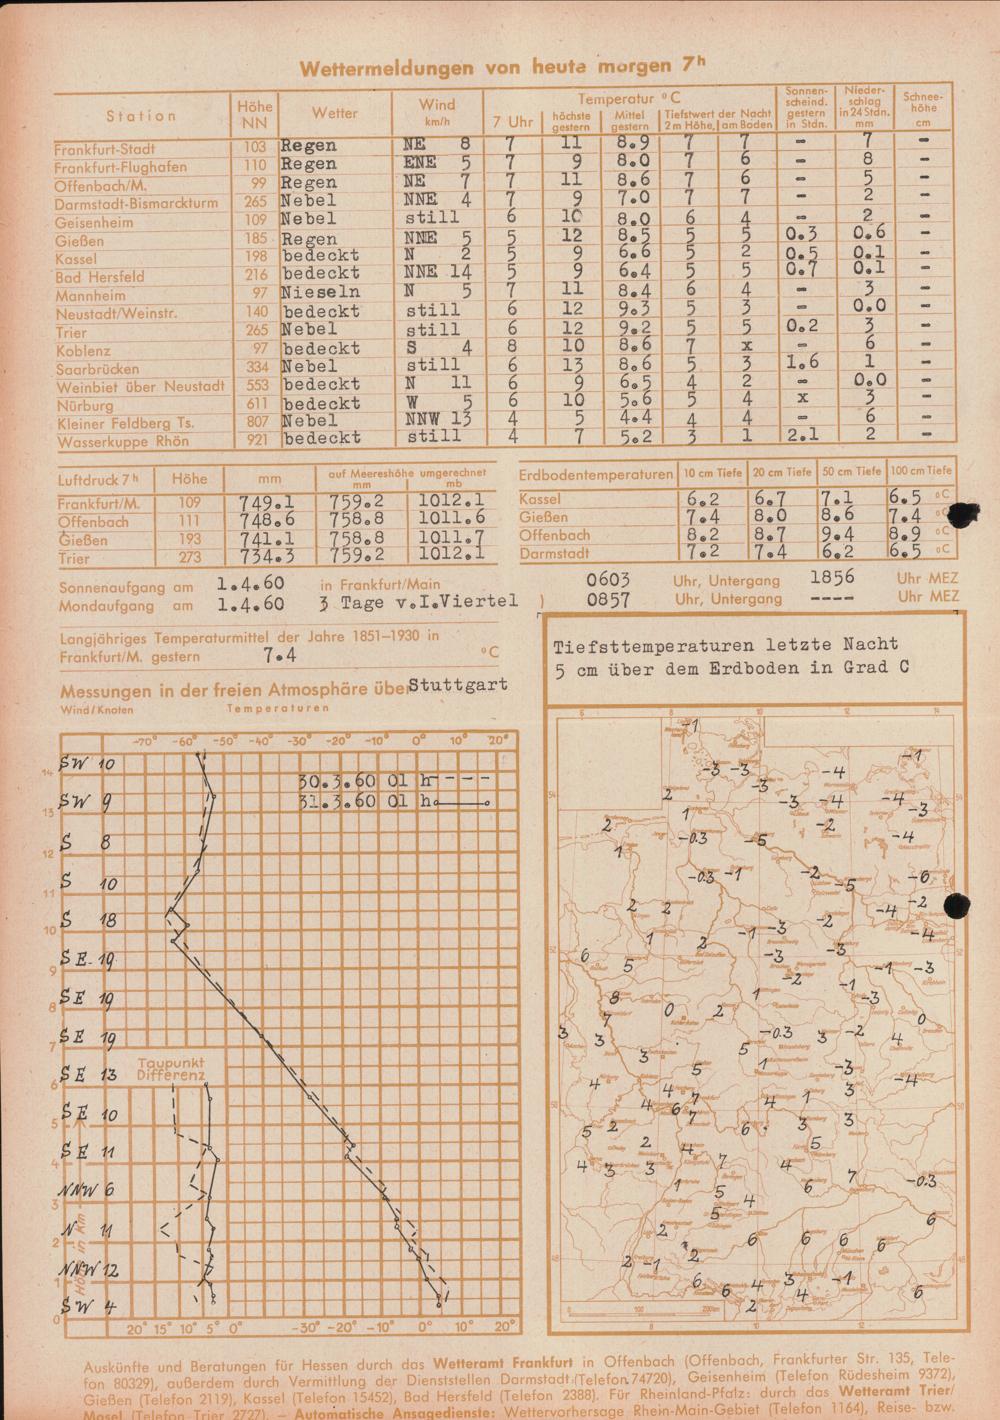 Wettermeldungen von heute morgen 7h
Station Höhe NN Wetter Wind km/h Temperatur °C 7 Uhr höchste gestern Mittel gestern Tiefstwert der Nacht 2m Höhe, am Boden Sonnen-scheind. gestern in Stdn. Nieder-schlag in 24 Stdn. mm Schnee-höhe cm
Frankfurt-Stadt 103 Regen NE 8 7 11 8.9 7 7 - 7 -
Frankfurt-Flughafen 110 Regen ENE 5 7 9 8.0 7 6 - 8 -
Offenbach/M. 99 Regen NE 7 7 11 8.6 7 6 - 5 -
Darmstadt-Bismarckturm 265 Nebel NNE 4 7 9 7.0 7 7 - 2 -
Geisenheim 109 Nebel still 6 10 8.0 6 4 - 2 -
Gießen 185 Regen NNE 5 5 12 8.5 5 5 0.3 0.6 -
Kassel 198 bedeckt N 2 5 9 6.6 5 2 0.5 0.1 -
Bad Hersfeld 216 bedeckt NNE 14 5 9 6.4 5 5 0.7 0.1 -
Mannheim 97 Nieseln N 5 7 11 8.4 6 4 - 3 -
Neustadt/Weinstr. 140 bedeckt still 6 12 9.3 5 3 - 0.0 -
Trier 265 Nebel still 6 12 9.2 5 5 0.2 3 -
Koblenz 97 bedeckt S 4 8 10 8.6 7 x - 6 -
Saarbrücken 334 Nebel still 6 13 8.6 5 3 1.6 1 -
Weinbiet über Neustadt 553 bedeckt N 11 6 9 6.5 4 2 - 0.0 -
Nürburg 611 bedeckt W 5 6 10 5.6 5 4 x 3 -
Kleiner Feldberg Ts. 807 Nebel NNW 13 4 5 4.4 4 4 - 6 -
Wasserkuppe Rhön 921 bedeckt still 4 7 5.2 3 1 2.1 2 -
Luftdruck 7h Höhe mm auf Meereshöhe umgerechnet mm mb
Frankfurt/M. 109 749.1 759.2 1012.1
Offenbach 111 748.6 758.8 1011.6
Gießen 193 741.1 758.8 1011.7
Trier 273 734.3 759.2 1012.1
Erdbodentemperaturen 10 cm Tiefe 20 cm Tiefe 50 cm Tiefe 100 cm Tiefe
Kassel 6.2 6.7 7.1 6.5 °C
Gießen 7.4 8.0 8.6 7.4 °C
Offenbach 8.2 8.7 9.4 8.9 °C
Darmstadt 7.2 7.4 6.2 6.5 °C
Sonnenaufgang am 1.4.60 in Frankfurt/Main 0603 Uhr, Untergang 1856 Uhr MEZ
Mondaufgang am 1.4.60 3 Tage v.I.Viertel ) 0857 Uhr, Untergang ---- Uhr MEZ
Langjähriges Temperaturmittel der Jahre 1851–1930 in
Frankfurt/M. gestern 7.4 °C
Messungen in der freien Atmosphäre über Stuttgart
Wind/Knoten Temperaturen
-70° -60° -50° -40° -30° -20° -10° 0° 10° 20°
SW 10
30.3.60 01 h ----
14
SW 9
31.3.60 01 h
13
S 8
12
S 10
11
S 18
10
SE 19
9
SE 19
8
SE 19
7
Taupunkt
Differenz
SE 13
6
SE 10
5
SE 11
4
NNW 6
3
N 11
2
NNW 12
1
SW 4
0
Höhe in Km
20° 15° 10° 5° 0° -30° -20° -10° 0° 10° 20°
Tiefsttemperaturen letzte Nacht
5 cm über dem Erdboden in Grad C
6 8 10 12 14
-1 -1
-3 -3 -4
-3
2 -3 -4 -4 -3
1
2 -2
1 -0.3 -5 -4
-0.3 -1 -2 -5 -6
2 2 -2 -4 -2
1 2 -1 -3 -4
6 5 -3 -3
-2 -1 -3
8 1 -1 -3
7 0 2 0
3 3 -0.3 3 -2 4
3 5
5 1 -3
4 -4
4 6 7 4 1 3
5 2 7 6 3 3
2 4 5
4 3 3 7 4
1 5 6 7 -0.3
4
5 6
2 6 6 6 6
2 -1 2
6 6 4 3 -1
2 4 6
0 100 200km
8 10 12
Auskünfte und Beratungen für Hessen durch das Wetteramt Frankfurt in Offenbach (Offenbach, Frankfurter Str. 135, Tele-
fon 80329), außerdem durch Vermittlung der Dienststellen Darmstadt (Telefon 74720), Geisenheim (Telefon Rüdesheim 9372),
Gießen (Telefon 2119), Kassel (Telefon 15452), Bad Hersfeld (Telefon 2388). Für Rheinland-Pfalz: durch das Wetteramt Trier/
Mosel (Telefon Trier 2727). – Automatische Ansagedienste: Wettervorhersage Rhein-Main-Gebiet (Telefon 1164), Reise- bzw.